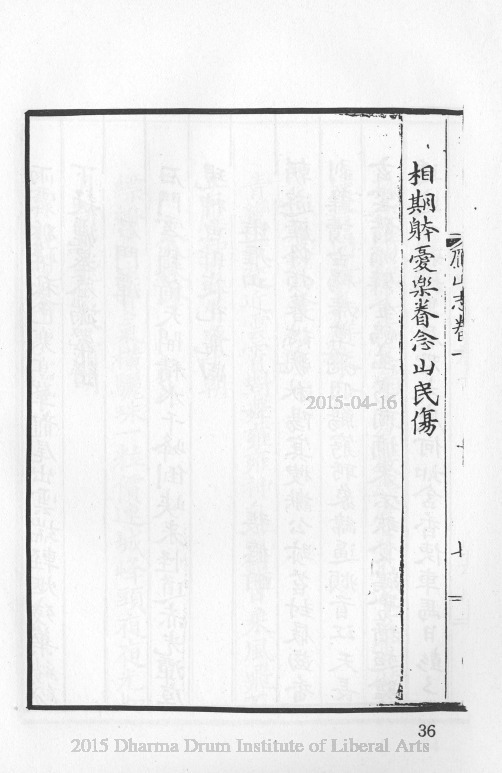 相期躰憂樂眷念山民傷
山志卷一
2015-04-16
36
2015 Dharma Drum Institute of Liberal Arts